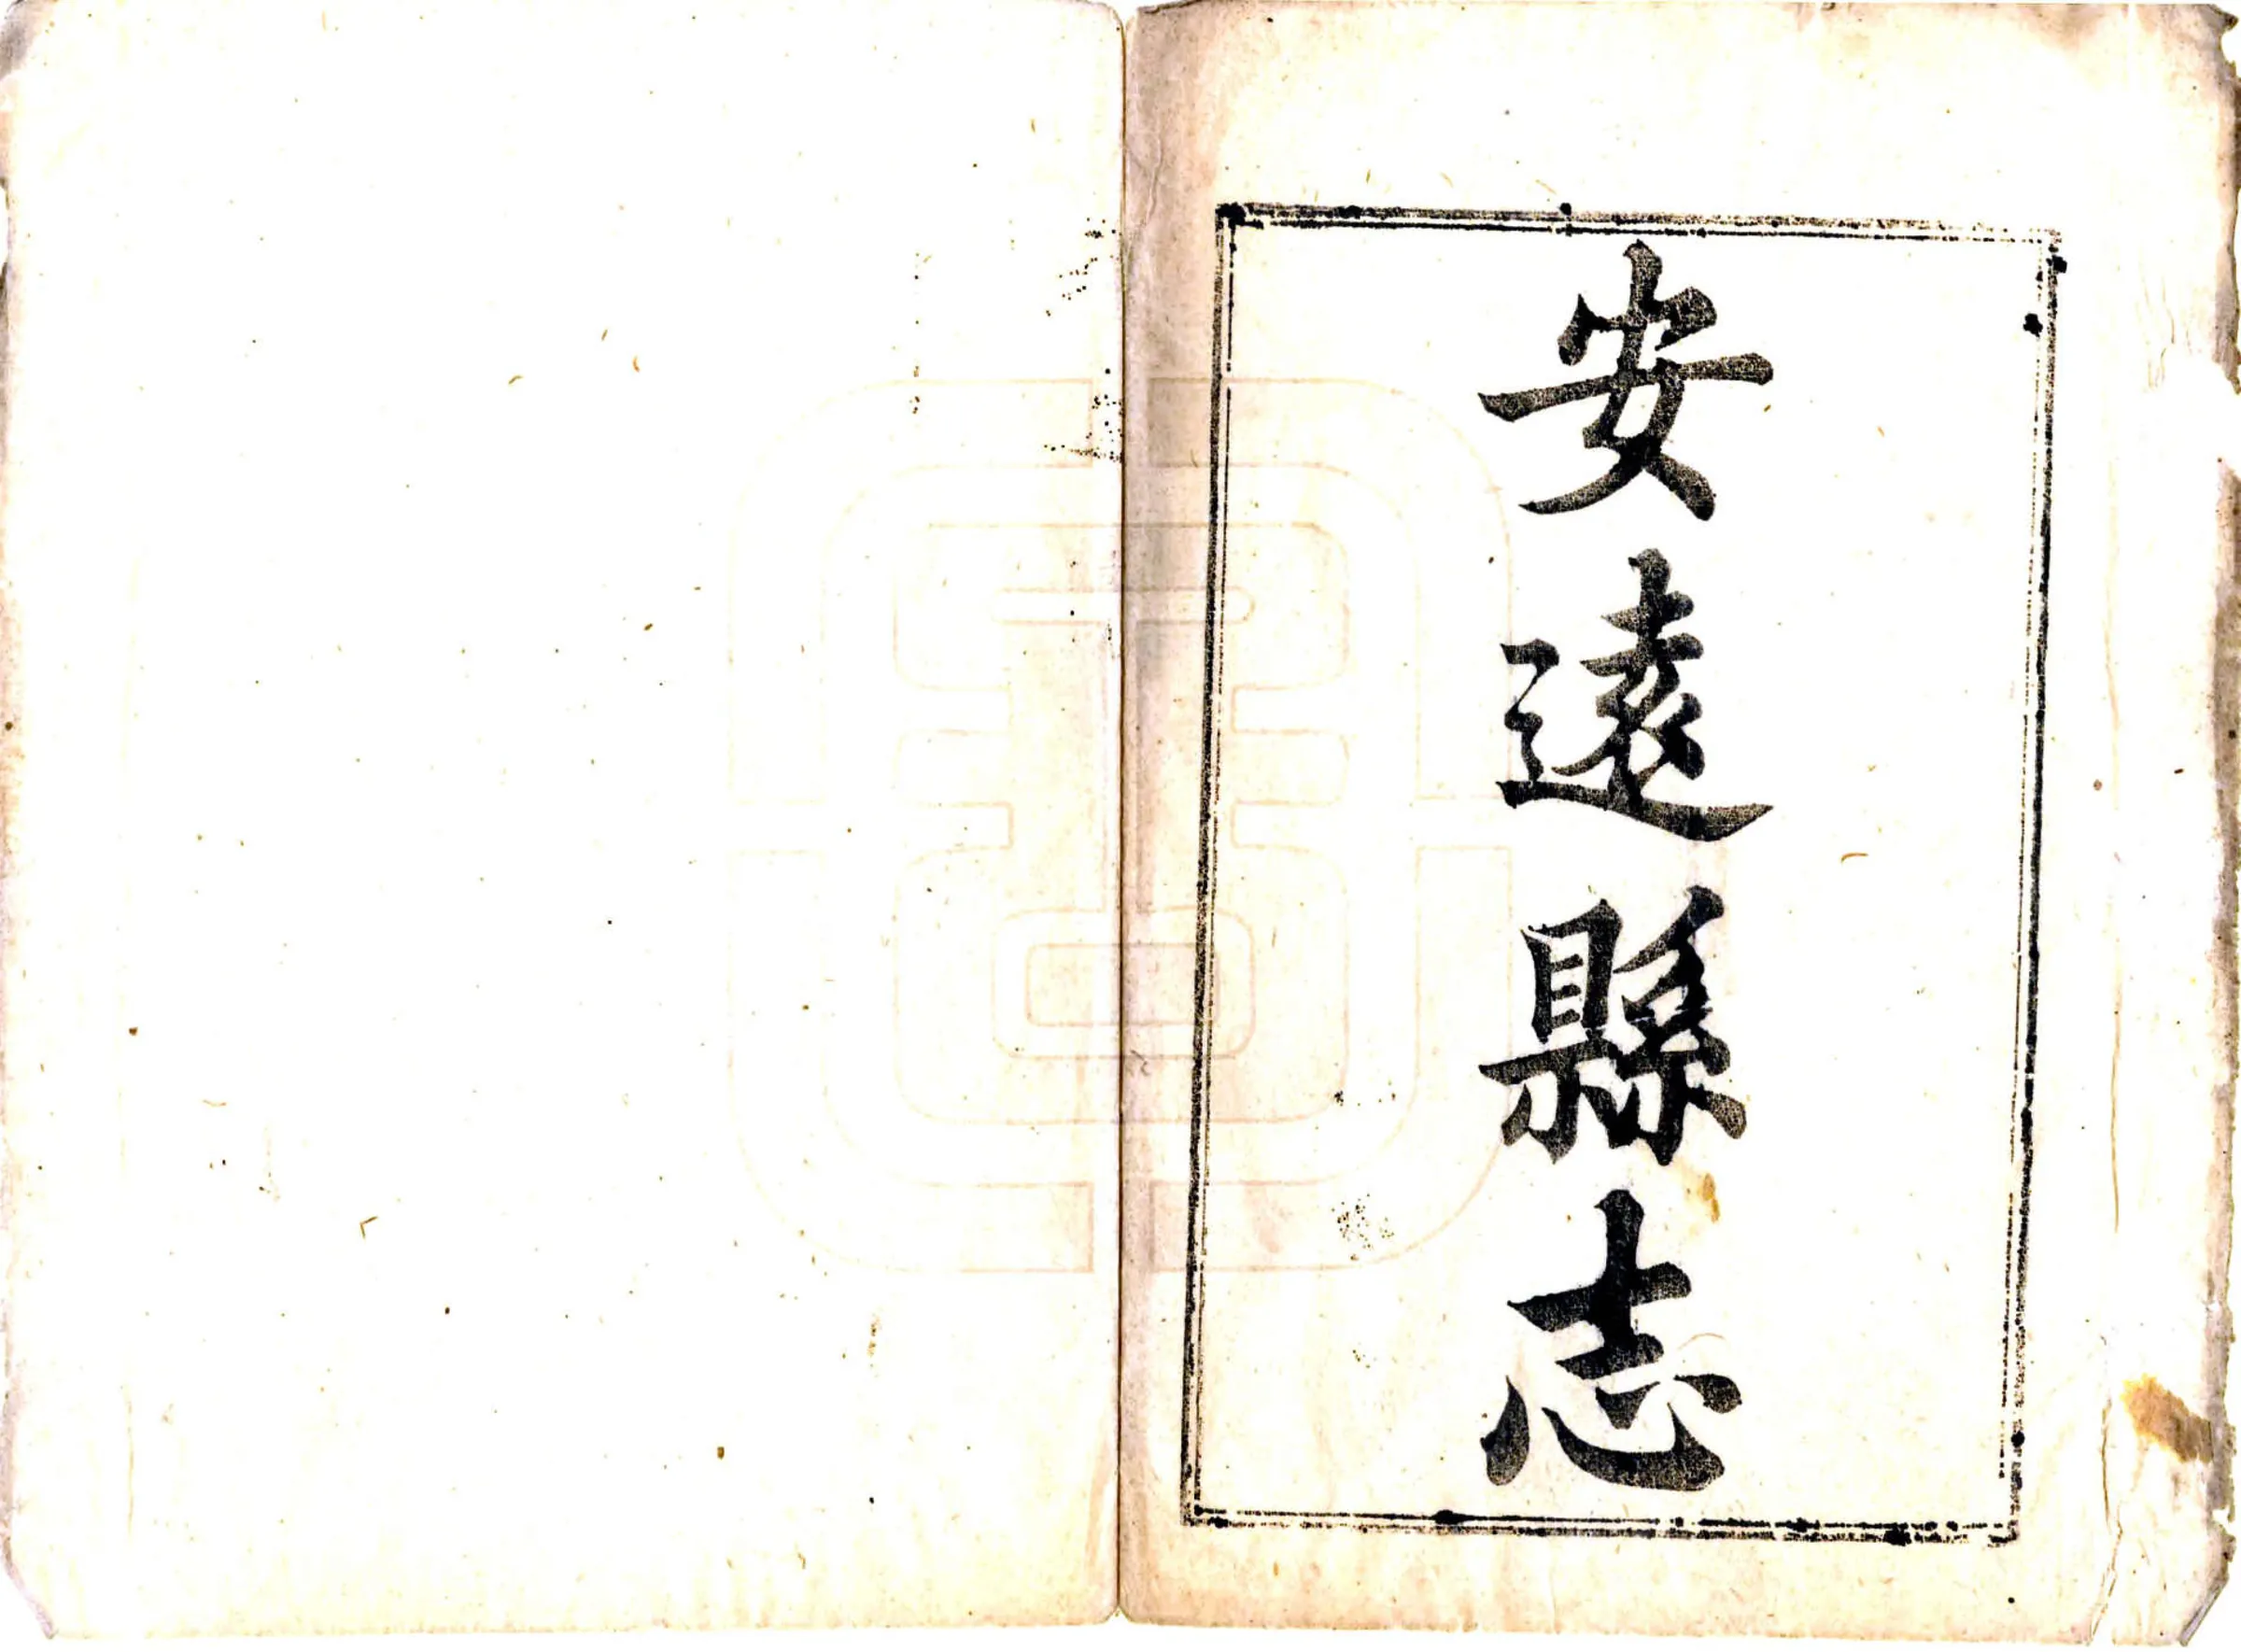 安遠縣志